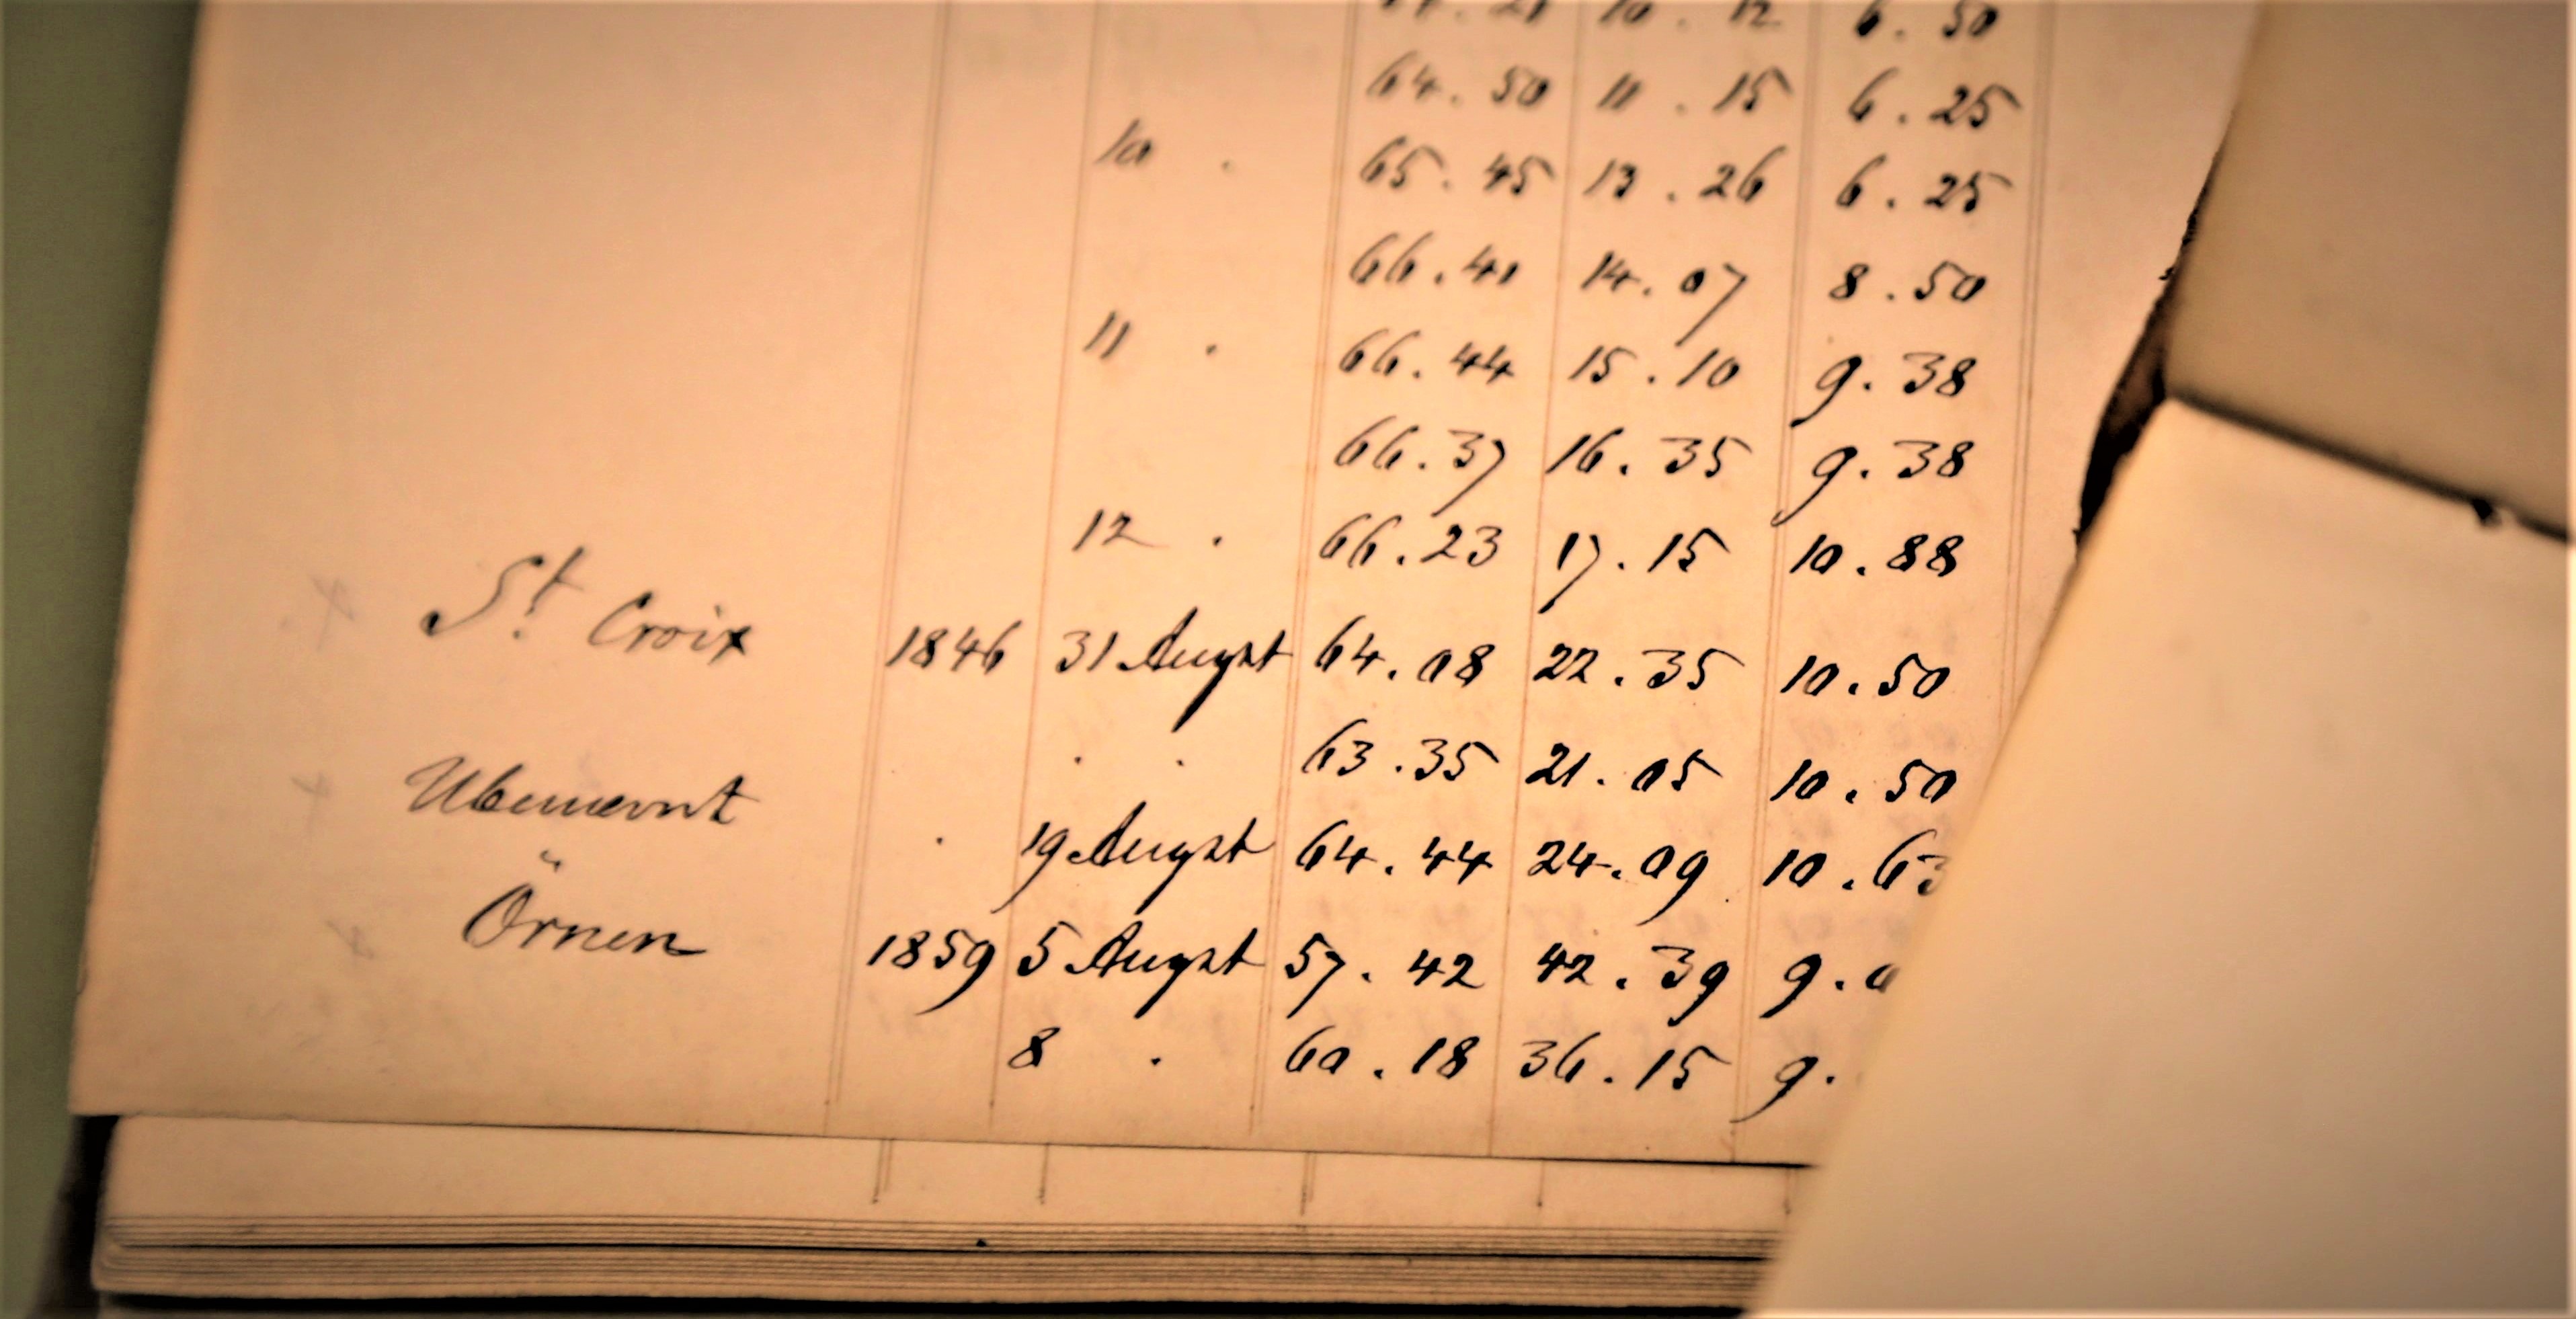 10 . 12 6 . 50
64 . 50 11 . 15 6 . 25
10 . 65 . 45 13 . 26 6 . 25
66 . 41 14 . 07 8 . 50
11 . 66 . 44 15 . 10 9 . 38
66 . 37 16 . 35 9 . 38
12 . 66 . 23 17 . 15 10 . 88
St. Croix 1846 31 August 64 . 08 22 . 35 10 . 50
. . 63 . 35 21 . 05 10 . 50
Ubenævnt . 19 August 64 . 44 24 . 09 10 . 63
Örnen 1859 5 August 57 . 42 42 . 39 9 . 0
8 . 60 . 18 36 . 15 9 .